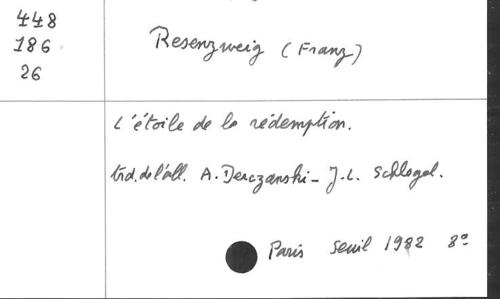 448
186
26
Rosenzweig (Franz)
L'étoile de la rédemption.
trad. de l'all. A. Derczanski - J.-L. Schlegel.
Paris Seuil 1982 8°